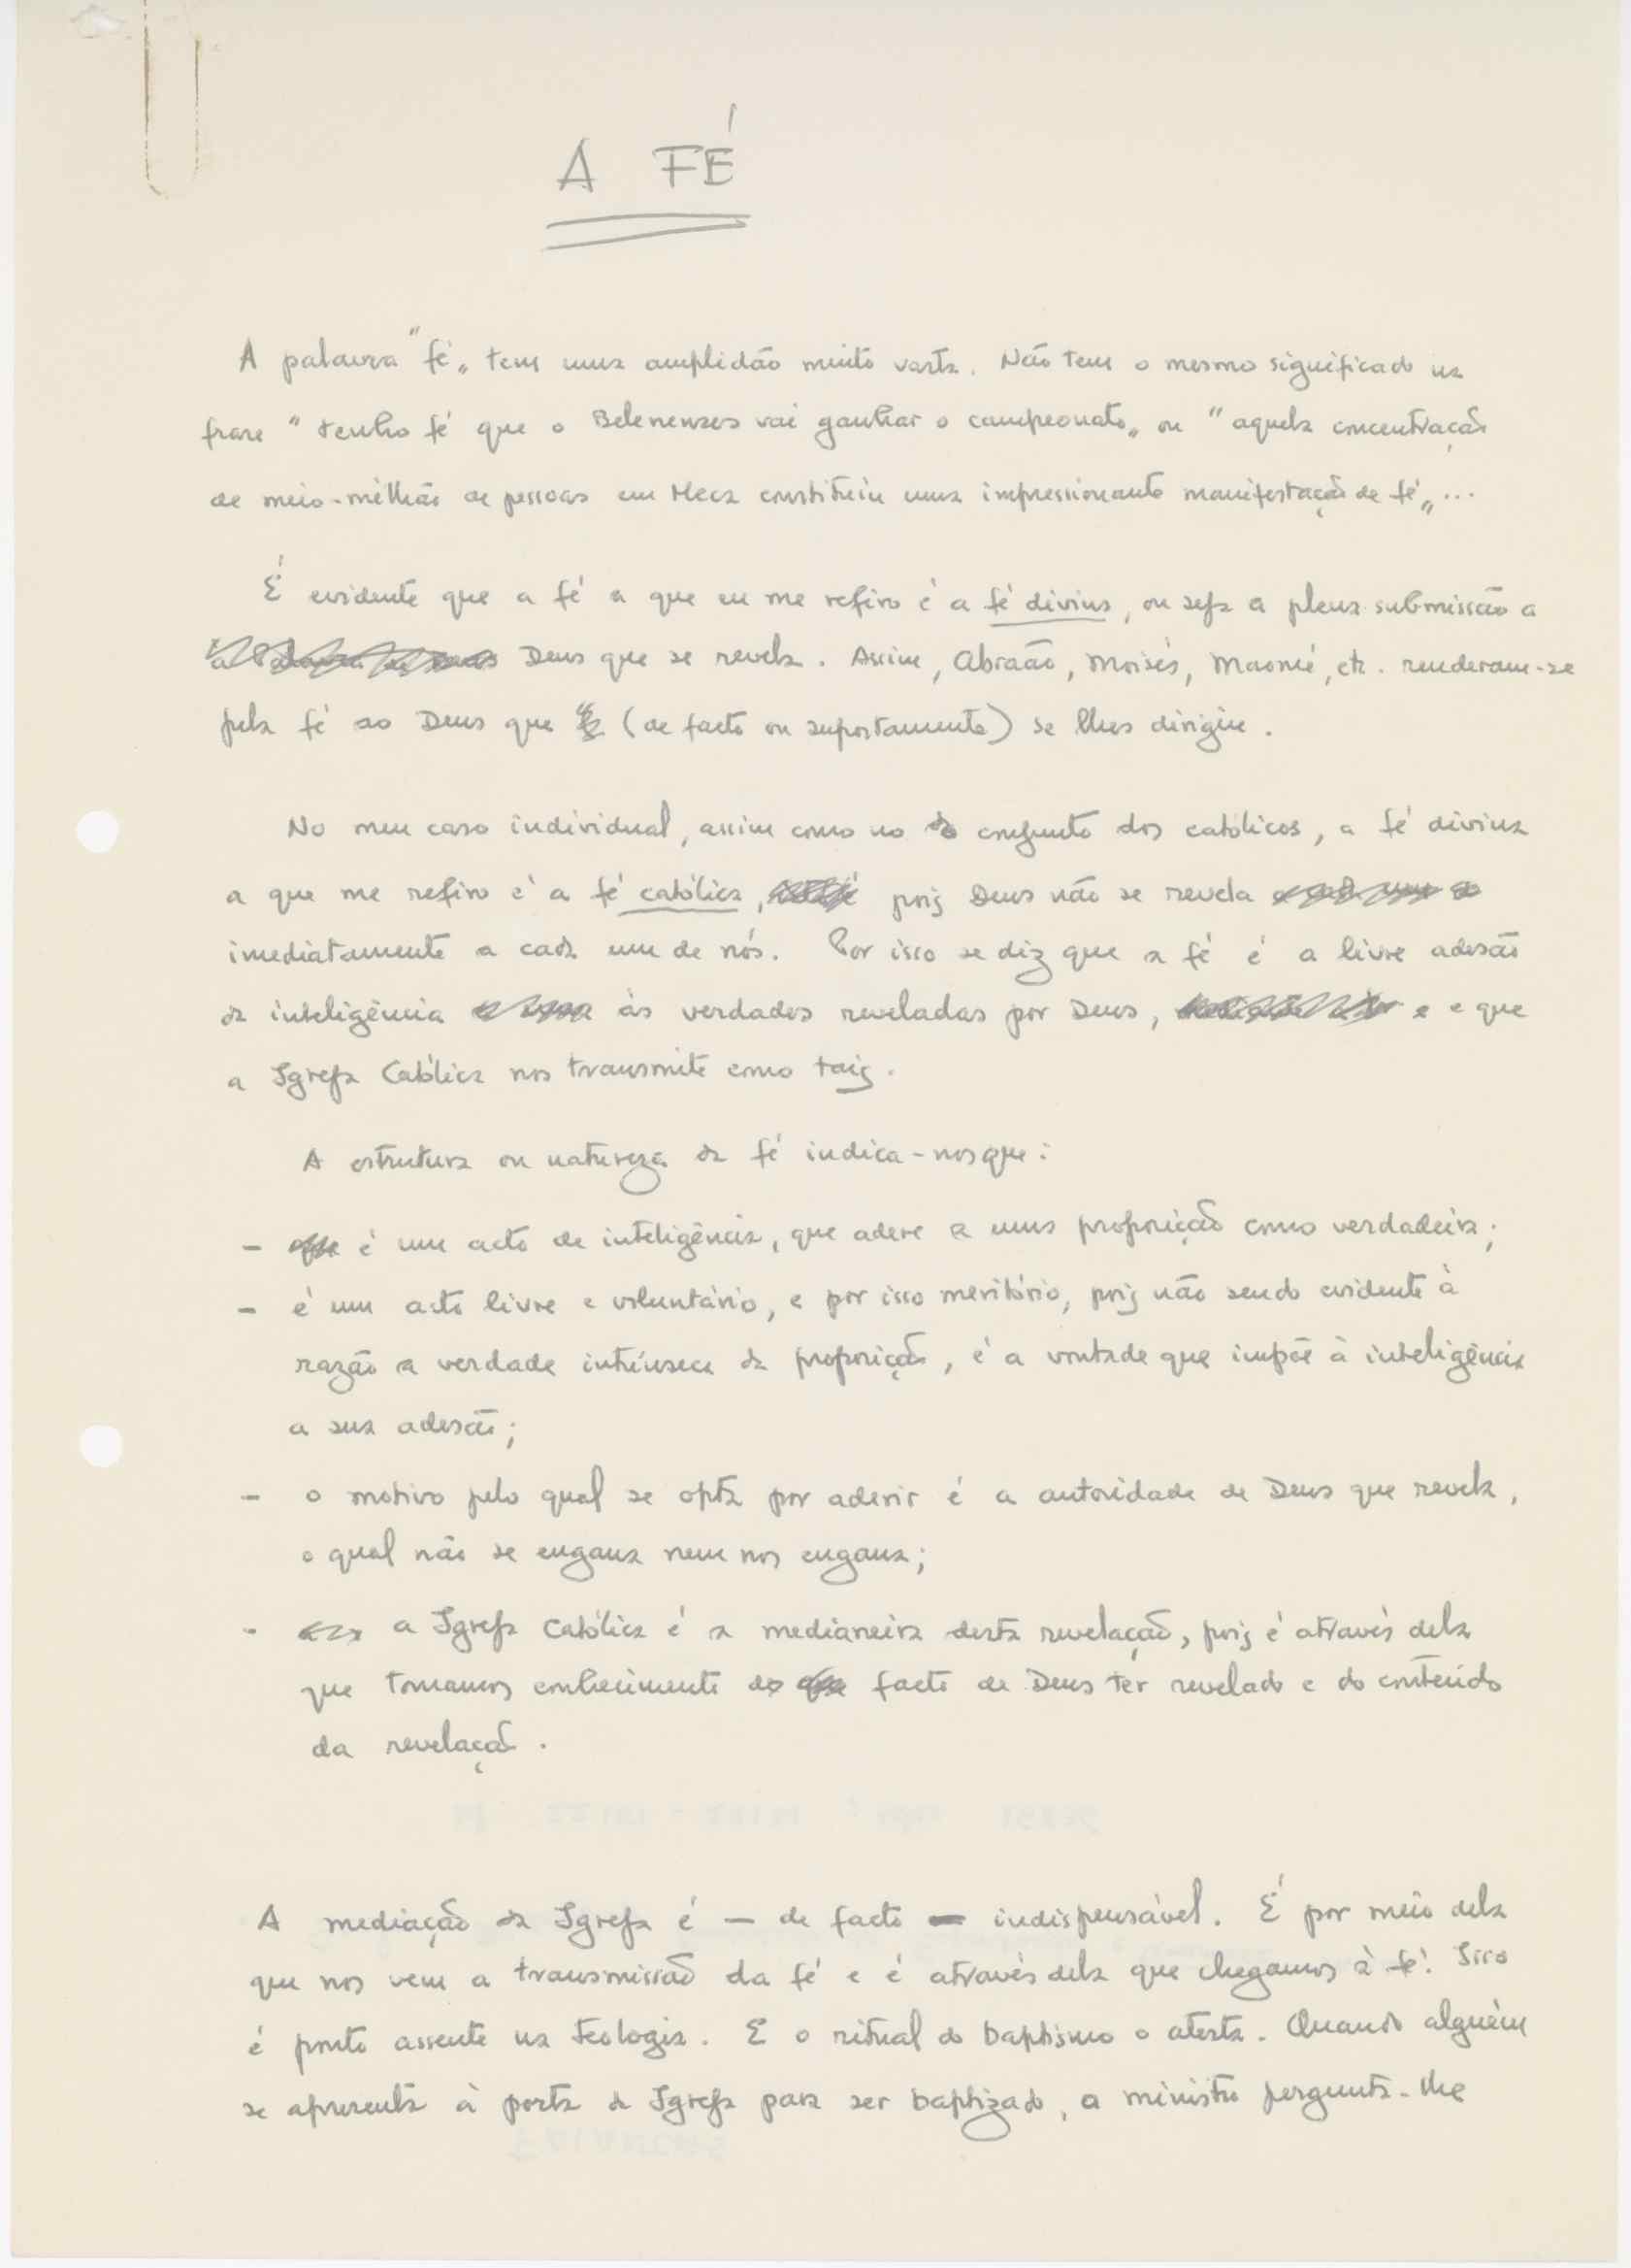 A FÉ
A palavra "fé" tem uma amplidão muito vasta. Não tem o mesmo significado na
frase "tenho fé que o Belenenses vai ganhar o campeonato" ou "aquela concentração
de meio-milhão de pessoas em Meca constituiu uma impressionante manifestação de fé"...
É evidente que a fé a que eu me refiro é a fé divina, ou seja a plena submissão a
Deus que se revela. Assim, Abraão, Moisés, Maomé, etc. renderam-se
pela fé ao Deus que (de facto ou supostamente) se lhes dirigiu.
No meu caso individual, assim como no do conjunto dos católicos, a fé divina
a que me refiro é a fé católica, pois Deus não se revela
imediatamente a cada um de nós. Por isso se diz que a fé é a livre adesão
da inteligência às verdades reveladas por Deus, e que
a Igreja Católica nos transmite como tais.
A estrutura ou natureza da fé indica-nos que:
- é um acto de inteligência, que adere a uma proposição como verdadeira;
- é um acto livre e voluntário, e por isso meritório, pois não sendo evidente à
razão a verdade intrínseca da proposição, é a vontade que impõe à inteligência
a sua adesão;
- o motivo pelo qual se opta por aderir é a autoridade de Deus que revela,
o qual não se engana nem nos engana;
- a Igreja Católica é a medianeira desta revelação, pois é através dela
que tomamos conhecimento do facto de Deus ter revelado e do conteúdo
da revelação.
A mediação da Igreja é — de facto — indispensável. É por meio dela
que nos vem a transmissão da fé e é através dela que chegamos à fé. Isso
é ponto assente na teologia. E o ritual do baptismo o atesta. Quando alguém
se apresenta à porta da Igreja para ser baptizado, o ministro pergunta-lhe